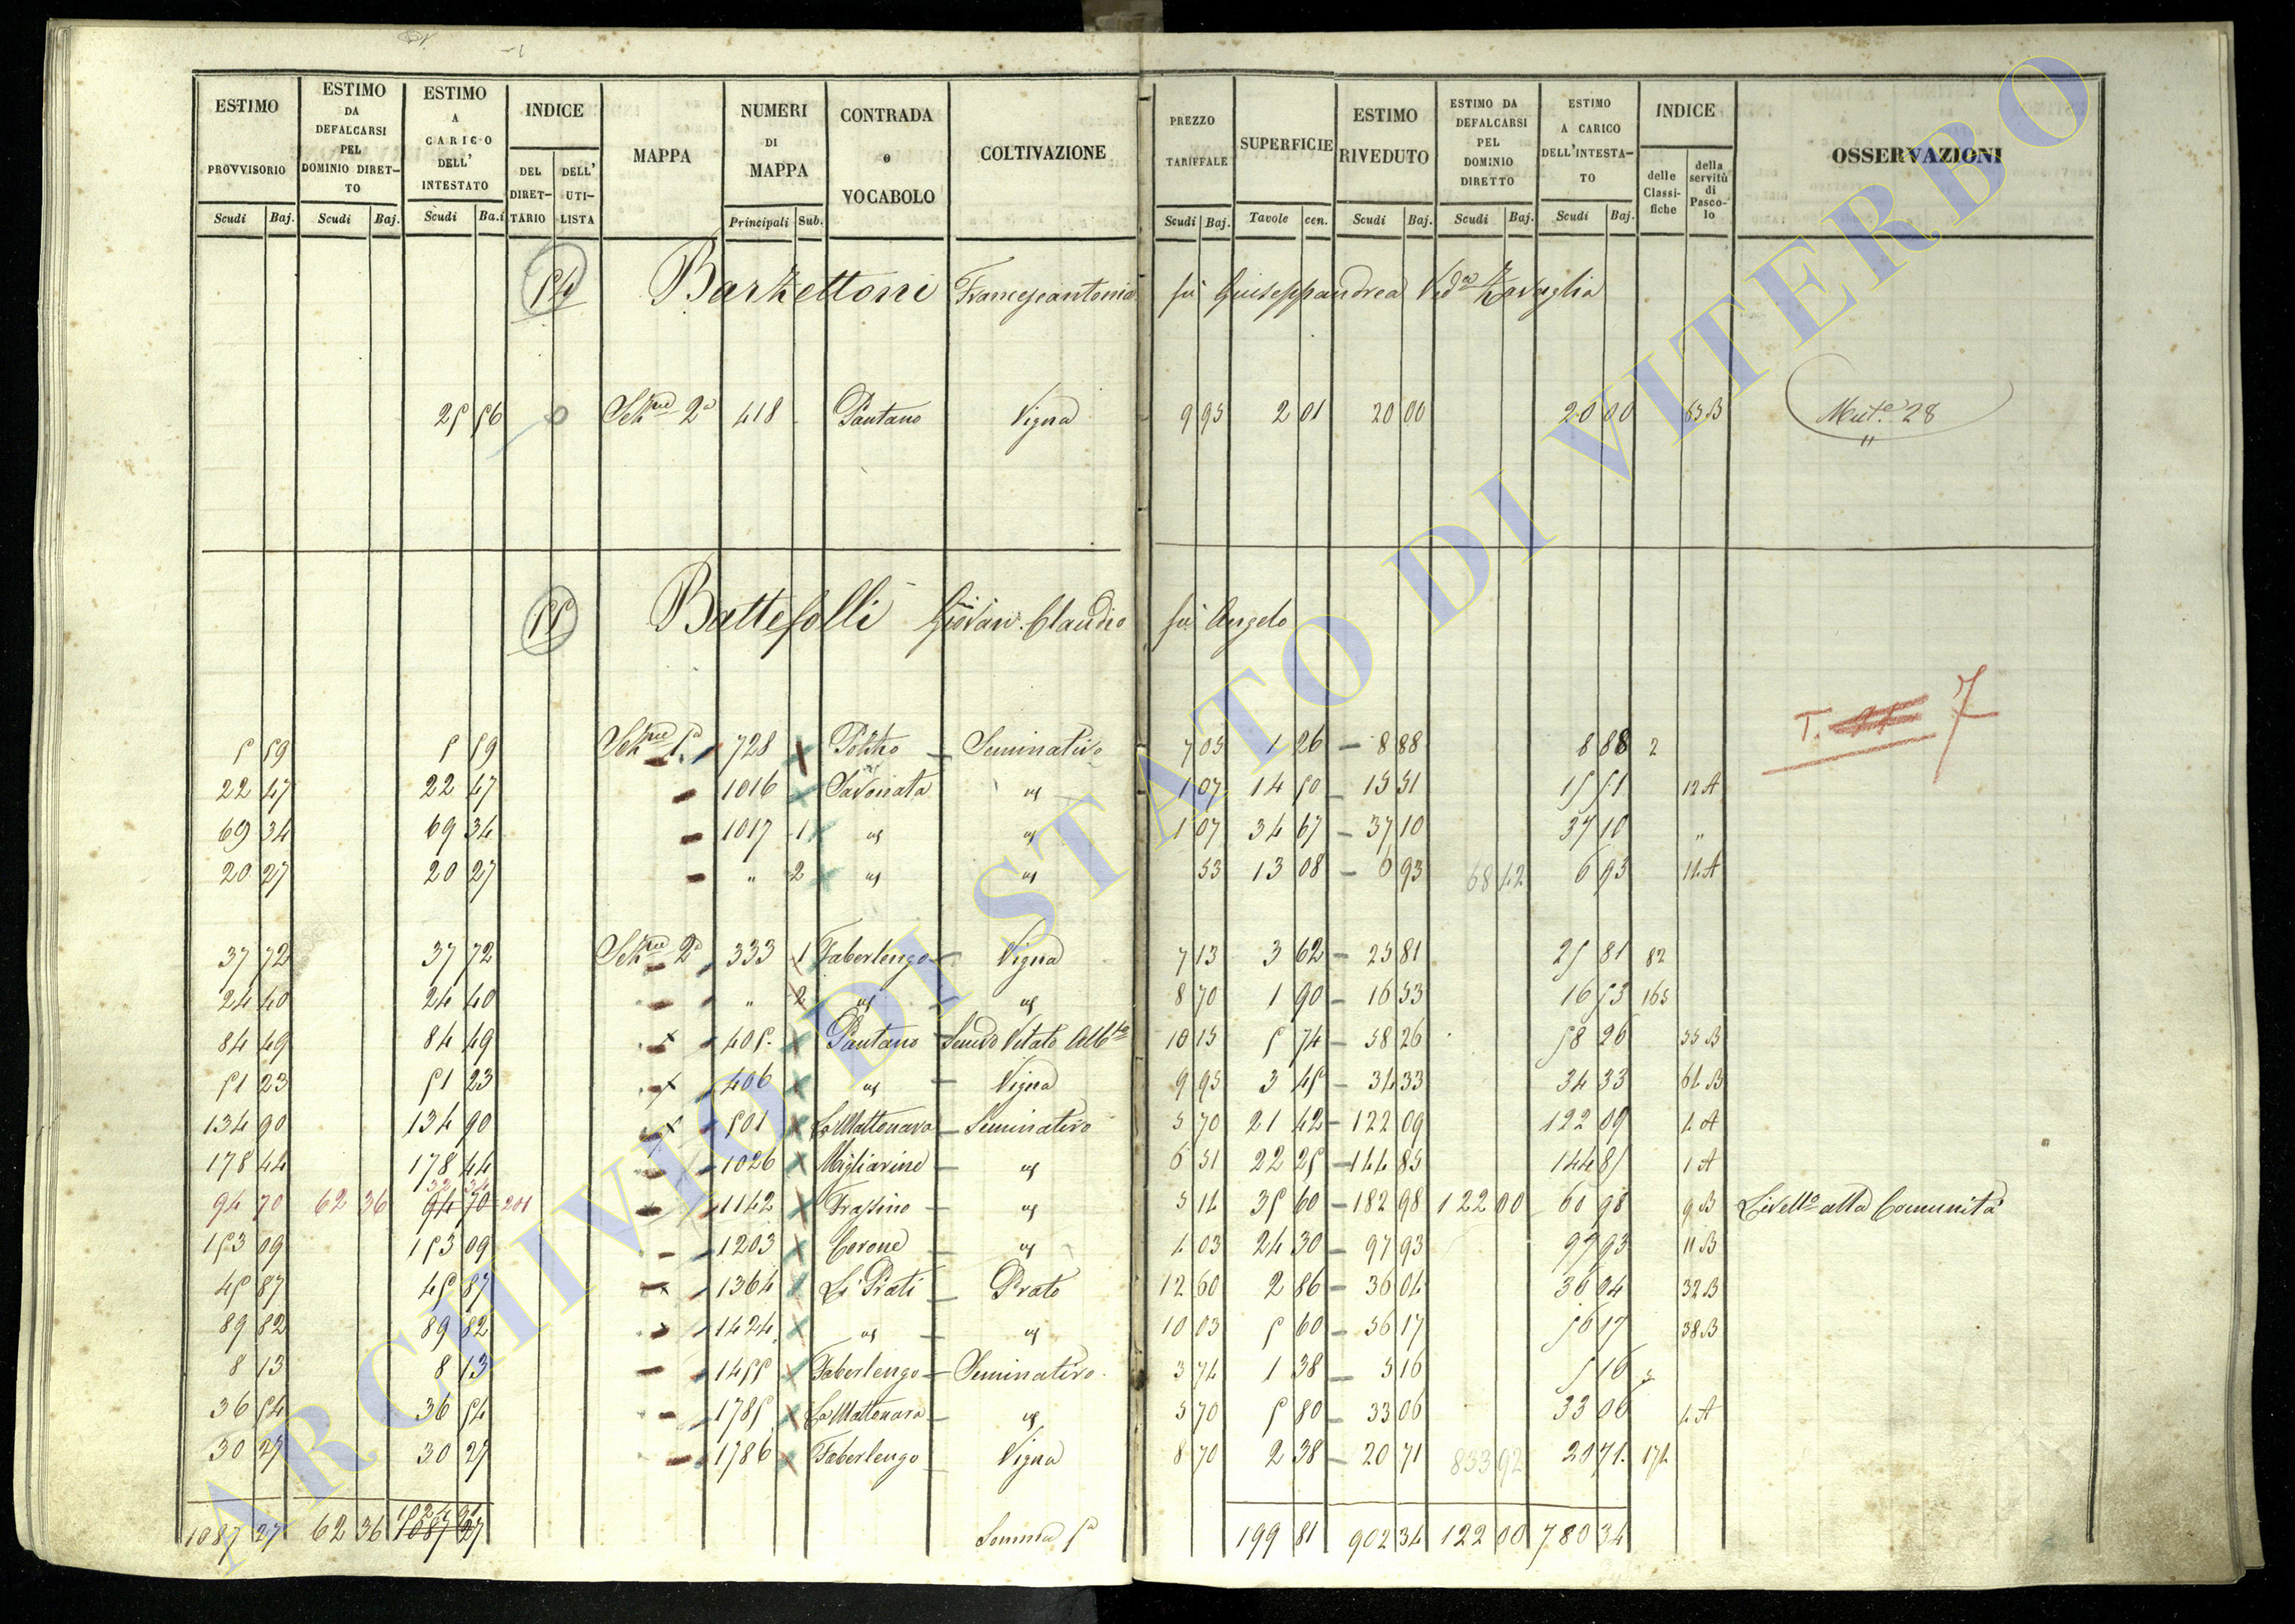 ESTIMO PROVVISORIO Scudi Baj.
ESTIMO DA DEFALCARSI PEL DOMINIO DIRETTO Scudi Baj.
ESTIMO A CARICO DELL' INTESTATO Scudi Ba.i
INDICE DEL DIRETTARIO DELL' UTILISTA
MAPPA
NUMERI DI MAPPA Principali Sub.
CONTRADA e VOCABOLO
COLTIVAZIONE
PREZZO TARIFFALE Scudi Baj.
SUPERFICIE Tavole cen.
ESTIMO RIVEDUTO Scudi Baj.
ESTIMO DA DEFALCARSI PEL DOMINIO DIRETTO Scudi Baj.
ESTIMO A CARICO DELL'INTESTATO Scudi Baj.
INDICE delle Classifiche della servitù di Pascolo
OSSERVAZIONI
54 Barzettoni Francescantonia fu Giuseppandrea Ved.a
25 56 Sez.ne 2a 418 Pantano Vigna 9 95 2 01 20 00 20 00 63 B Mut.e 28
55 Battefolli Giovan Claudio fu Angelo
T. 7
5 59 5 59 Sez.ne 1a 728 Seminativo 7 05 1 26 8 88 8 88 2
22 47 22 47 1016 Savonata " 1 07 14 50 15 51 15 51 12 A
69 34 69 34 1017 1 " " 1 07 34 67 37 10 37 10 "
20 27 20 27 " 2 " " 53 13 08 6 93 68 42 6 93 11 A
37 72 37 72 Sez.ne 2a 333 1 Faberlengo Vigna 7 13 3 62 25 81 25 81 82
24 40 24 40 " 2 " " 8 70 1 90 16 53 16 53 165
84 49 84 49 405 Pantano Semvo Vitato Alb.to 10 15 5 74 58 26 58 26 55 B
51 23 51 23 406 " Vigna 9 95 3 45 34 33 34 33 61 B
134 90 134 90 501 La Mattonara Seminativo 5 70 21 42 122 09 122 09 4 A
178 44 178 44 1026 Migliarine " 6 51 22 25 144 85 144 85 1 A
94 70 62 36 32 34 94 70 201 1142 Frassino " 5 14 35 60 182 98 122 00 60 98 9 B Livello alla Comunità
153 09 153 09 1203 Cerone " 4 03 24 30 97 93 97 93 11 B
45 87 45 87 1364 Li Prati Prato 12 60 2 86 36 04 36 04 32 B
89 82 89 82 1424 " " 10 03 5 60 56 17 56 17 38 B
8 13 8 13 1455 Faberlengo Seminativo 3 74 1 38 5 16 5 16
36 54 36 54 1785 La Mattonara " 5 70 5 80 33 06 33 06 4 A
30 27 30 27 1786 Faberlengo Vigna 8 70 2 38 20 71 833 92 20 71 174
1087 27 62 36 1024 91 1087 27 Somma 199 81 902 34 122 00 780 34
ARCHIVIO DI STATO DI VITERBO